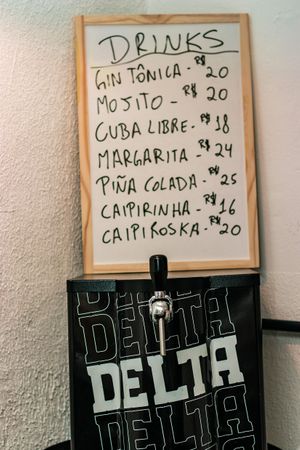 DRINKS
GIN TÔNICA - R$ 20
MOJITO - R$ 20
CUBA LIBRE - R$ 18
MARGARITA - R$ 24
PIÑA COLADA - R$ 25
CAIPIRINHA - R$ 16
CAIPIROSKA - R$ 20
DELTA
DELTA
DELTA
DELTA